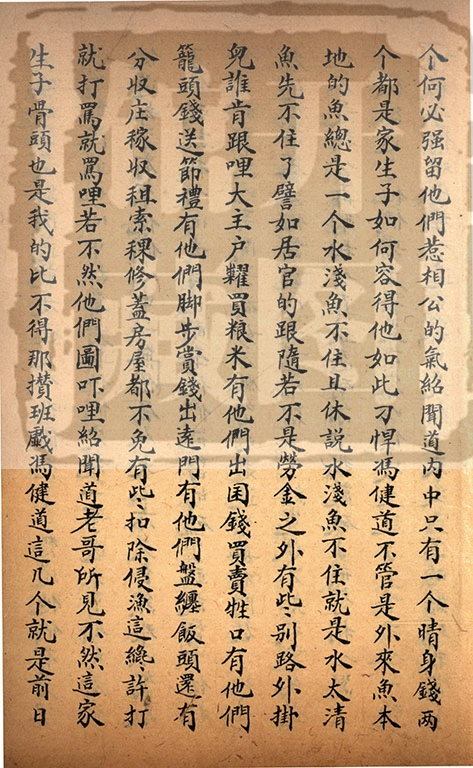 个何必强留他們惹相公的氣紹聞道內中只有一个晴身錢两
个都是家生子如何容得他如此刁悍馮健道不管是外來魚本
地的魚總是一个水淺魚不住且休説水淺魚不住就是水太清
魚先不住了譬如居官的跟隨若不是勞金之外有些〻別路外掛
兒誰肯跟哩大主户糶買粮米有他們出囯錢買賣牲口有他們
籠頭錢送節禮有他們脚步賞錢出遠門有他們盤纏飯頭還有
分収庄稼収租索稞修蓋房屋都不免有些〻扣除侵漁這纔許打
就打罵就罵哩若不然他們圖吓哩紹聞道老哥所見不然這家
生子骨頭也是我的比不得那攢班戯馮健道這几个就是前日